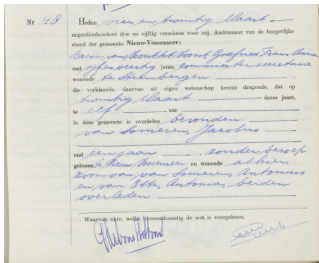 Nr 48 Heden vier en twintig Maart
negentienhonderd drie en vijftig verscheen voor mij, Ambtenaar van de burgerlijke
stand der gemeente Nieuw-Vossemeer:
Godfried Frans Maria
oud vijfenveertig jaren, commies ter secretarie
wonende te Steenbergen
die verklaarde, daarvan uit eigen wetenschap kennis dragende, dat op
twintig Maart dezes jaars,
te elf uur
in deze gemeente is overleden bevonden
van Someren, Jacobus
oud een jaar zonder beroep
geboren te Nieuw Vossemeer en wonende alhier
zoon van van Someren, Antonius
en van Etten, Antonia, beiden
overleden.
Waarvan akte, welke overeenkomstig de wet is voorgelezen.